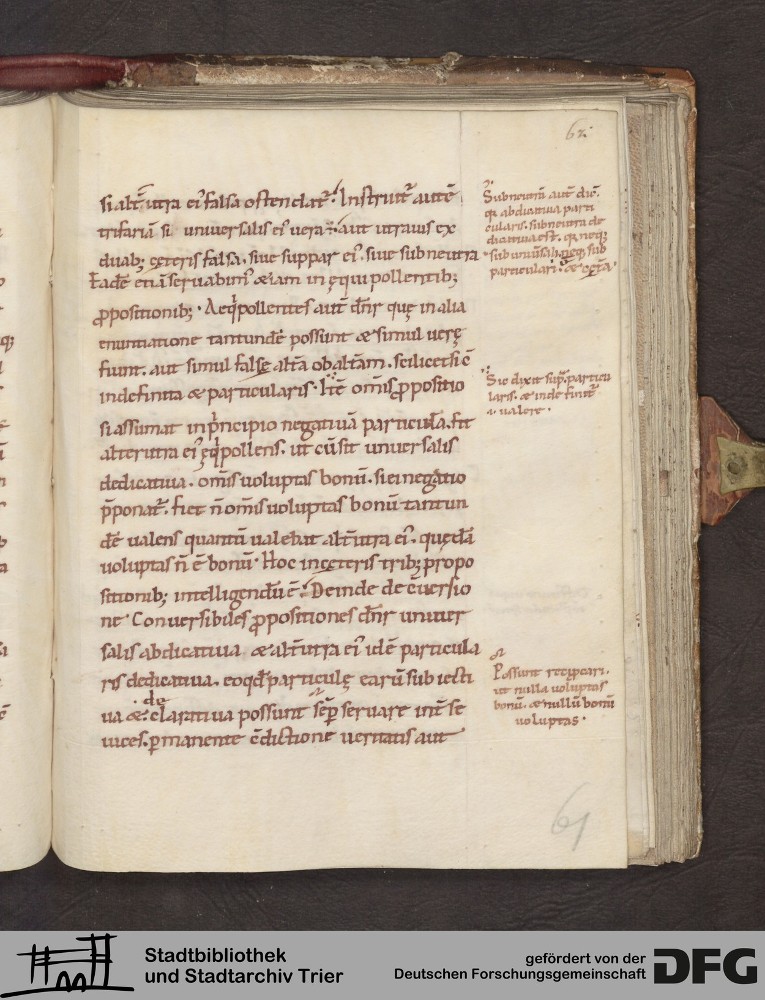 62
si alt̄ utra ei' falsa ostendat᷑. Instruit᷑ autē
trifariā si universalis ei' vera ÷ aut utravis ex
duab; ceteris falsa. sive suppar ei'. sive subneutra
Eadē etiā servabim' & iam in equipollentib;
ꝓpositionib; · Aeq'pollentes aut̄ dn̄r quę in alia
enuntiatione tantundē possunt & simul verę
fiunt. aut simul false alt̄a ob alt̄am. scilicet sic̄
indefinita & particularis · Itē om̄is ꝓpositio
si assumat in p'ncipio negativā particulā. fit
alterutra ei' ęq'pollens. ut cū sit universalis
dedicativa. om̄is voluptas bonū. si ei negatio
p̄ponat᷑. fiet n̄ om̄is voluptas bonū tantun
dē valens quantū valebat alt̄utra ei'. quędā
voluptas n̄ ē bonū · Hoc in ceteris trib; propo
sitionib; intelligendū ē. Deinde de c̄versio
ne · Conversibiles ꝓpositiones dn̄r univer
salis abdicativa & alt̄utra ei' idē particula
ris dedicativa. eo qd̄ particulę earū subiecti
va & de clarativa possunt sēp servare int̄ se
vices. ꝑmanente c̄dictione veritatis aut
Subneutrā aut̄ dic̄.
q; abdicativa parti
cularis. subneutra de
dicativa est. q; neq;
sub univ̄sali. neq; sub
particulari · & c̄t̄a
Sic dixit sup̄. particu
laris. & indefinit̄
valere ·
Possunt reciprcari.
ut nulla voluptas
bonū. & nullū bonū
voluptas ·
61
Stadtbibliothek
und Stadtarchiv Trier
gefördert von der
Deutschen Forschungsgemeinschaft
DFG